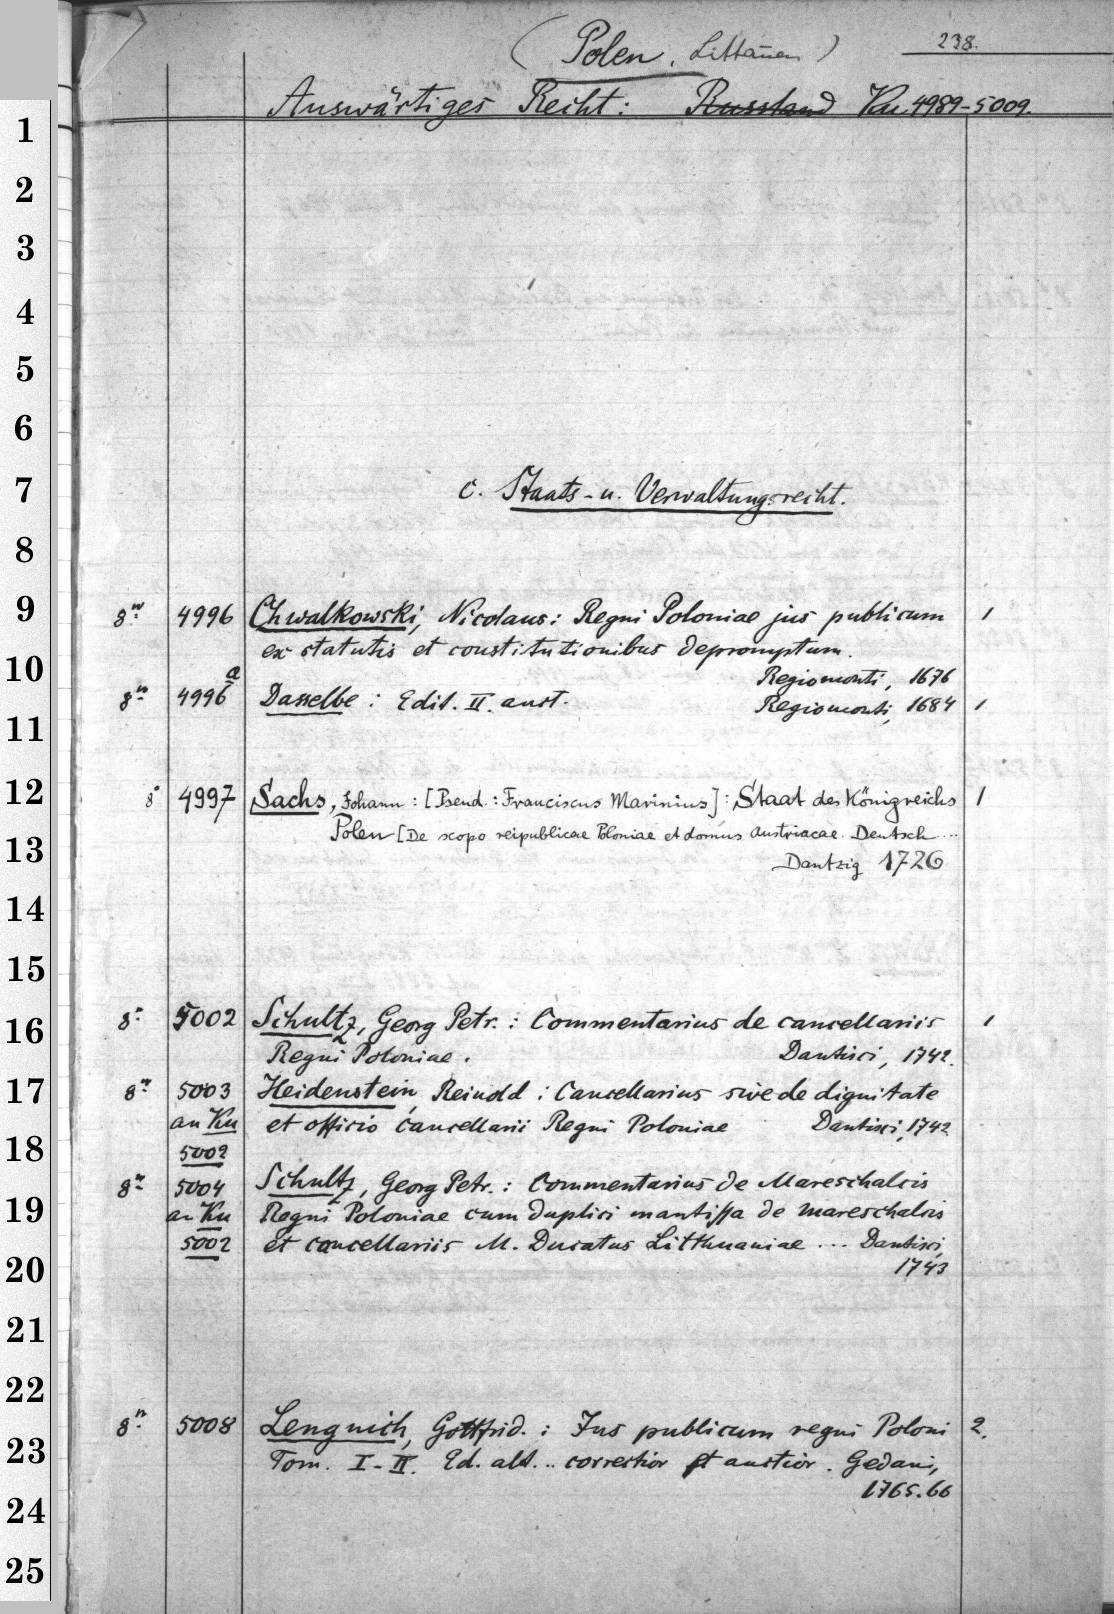 (Polen, Littauen) 238.
Auswärtiges Recht: Russland Ku 4989-5009.
1
2
3
4
5
6
7 c. Staats- u. Verwaltungsrecht.
8
9 8° 4996 Chwalkowski, Nicolaus: Regni Poloniae jus publicum 1
ex statutis et constitutionibus depromptum.
10 Regiomonti, 1676
8° 4996a Dasselbe: Edit. II. auct. Regiomonti, 1684 1
11
12 8° 4997 Sachs, Johann: [Pseud.: Franciscus Marinius]: Staat des Königreichs 1
Polen [De scopo reipublicae Poloniae et domus austriacae. Deutsch ...
13 Dantzig 1726
14
15
16 8° 5002 Schultz, Georg Petr.: Commentarius de cancellariis 1
Regni Poloniae. Dantisci, 1742.
17 8° 5003 Heidenstein, Reinold: Cancellarius sive de dignitate
an Ku et officio cancellarii Regni Poloniae Dantisci, 1742
18 5002
8° 5004 Schultz, Georg Petr.: Commentarius de Mareschalcis
19 an Ku Regni Poloniae cum duplici mantissa de mareschalcis
5002 et cancellariis M. Ducatus Litthuaniae ... Dantisci,
20 1743
21
22
8° 5008 Lengnich, Gottfrid.: Jus publicum regni Poloni 2.
23 Tom. I-II. Ed. alt. .. correctior et auctior. Gedani,
1765.66
24
25